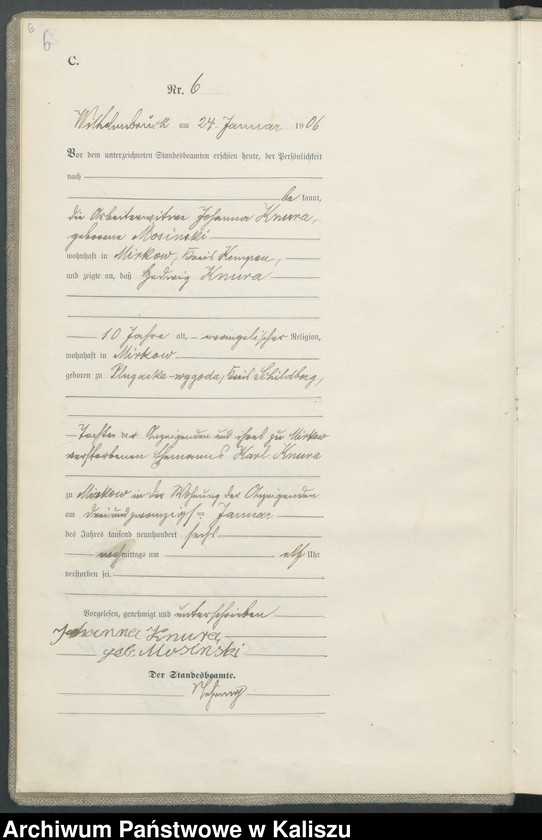 6
6
C.
Nr. 6
Wilhelmsbrück am 24. Januar 1906
Vor dem unterzeichneten Standesbeamten erschien heute, der Persönlichkeit
nach
be kannt,
die Arbeiterwitwe Johanna Knura,
geborene Mosinski
wohnhaft in Mirkow, Kreis Kempen,
und zeigte an, daß Hedwig Knura
10 Jahre alt, evangelischer Religion,
wohnhaft in Mirkow
geboren zu Plugacka-wygoda, Kreis Schildberg,
Tochter der Anzeigenden und ihres zu Mirkow
verstorbenen Ehemannes Karl Knura
zu Mirkow in der Wohnung der Anzeigenden
am dreiundzwanzigsten Januar
des Jahres tausend neunhundert sechs
nachmittags um elf Uhr
verstorben sei.
Vorgelesen, genehmigt und unterschrieben
Johanna Knura
geb. Mosinski
Der Standesbeamte.
Archiwum Państwowe w Kaliszu